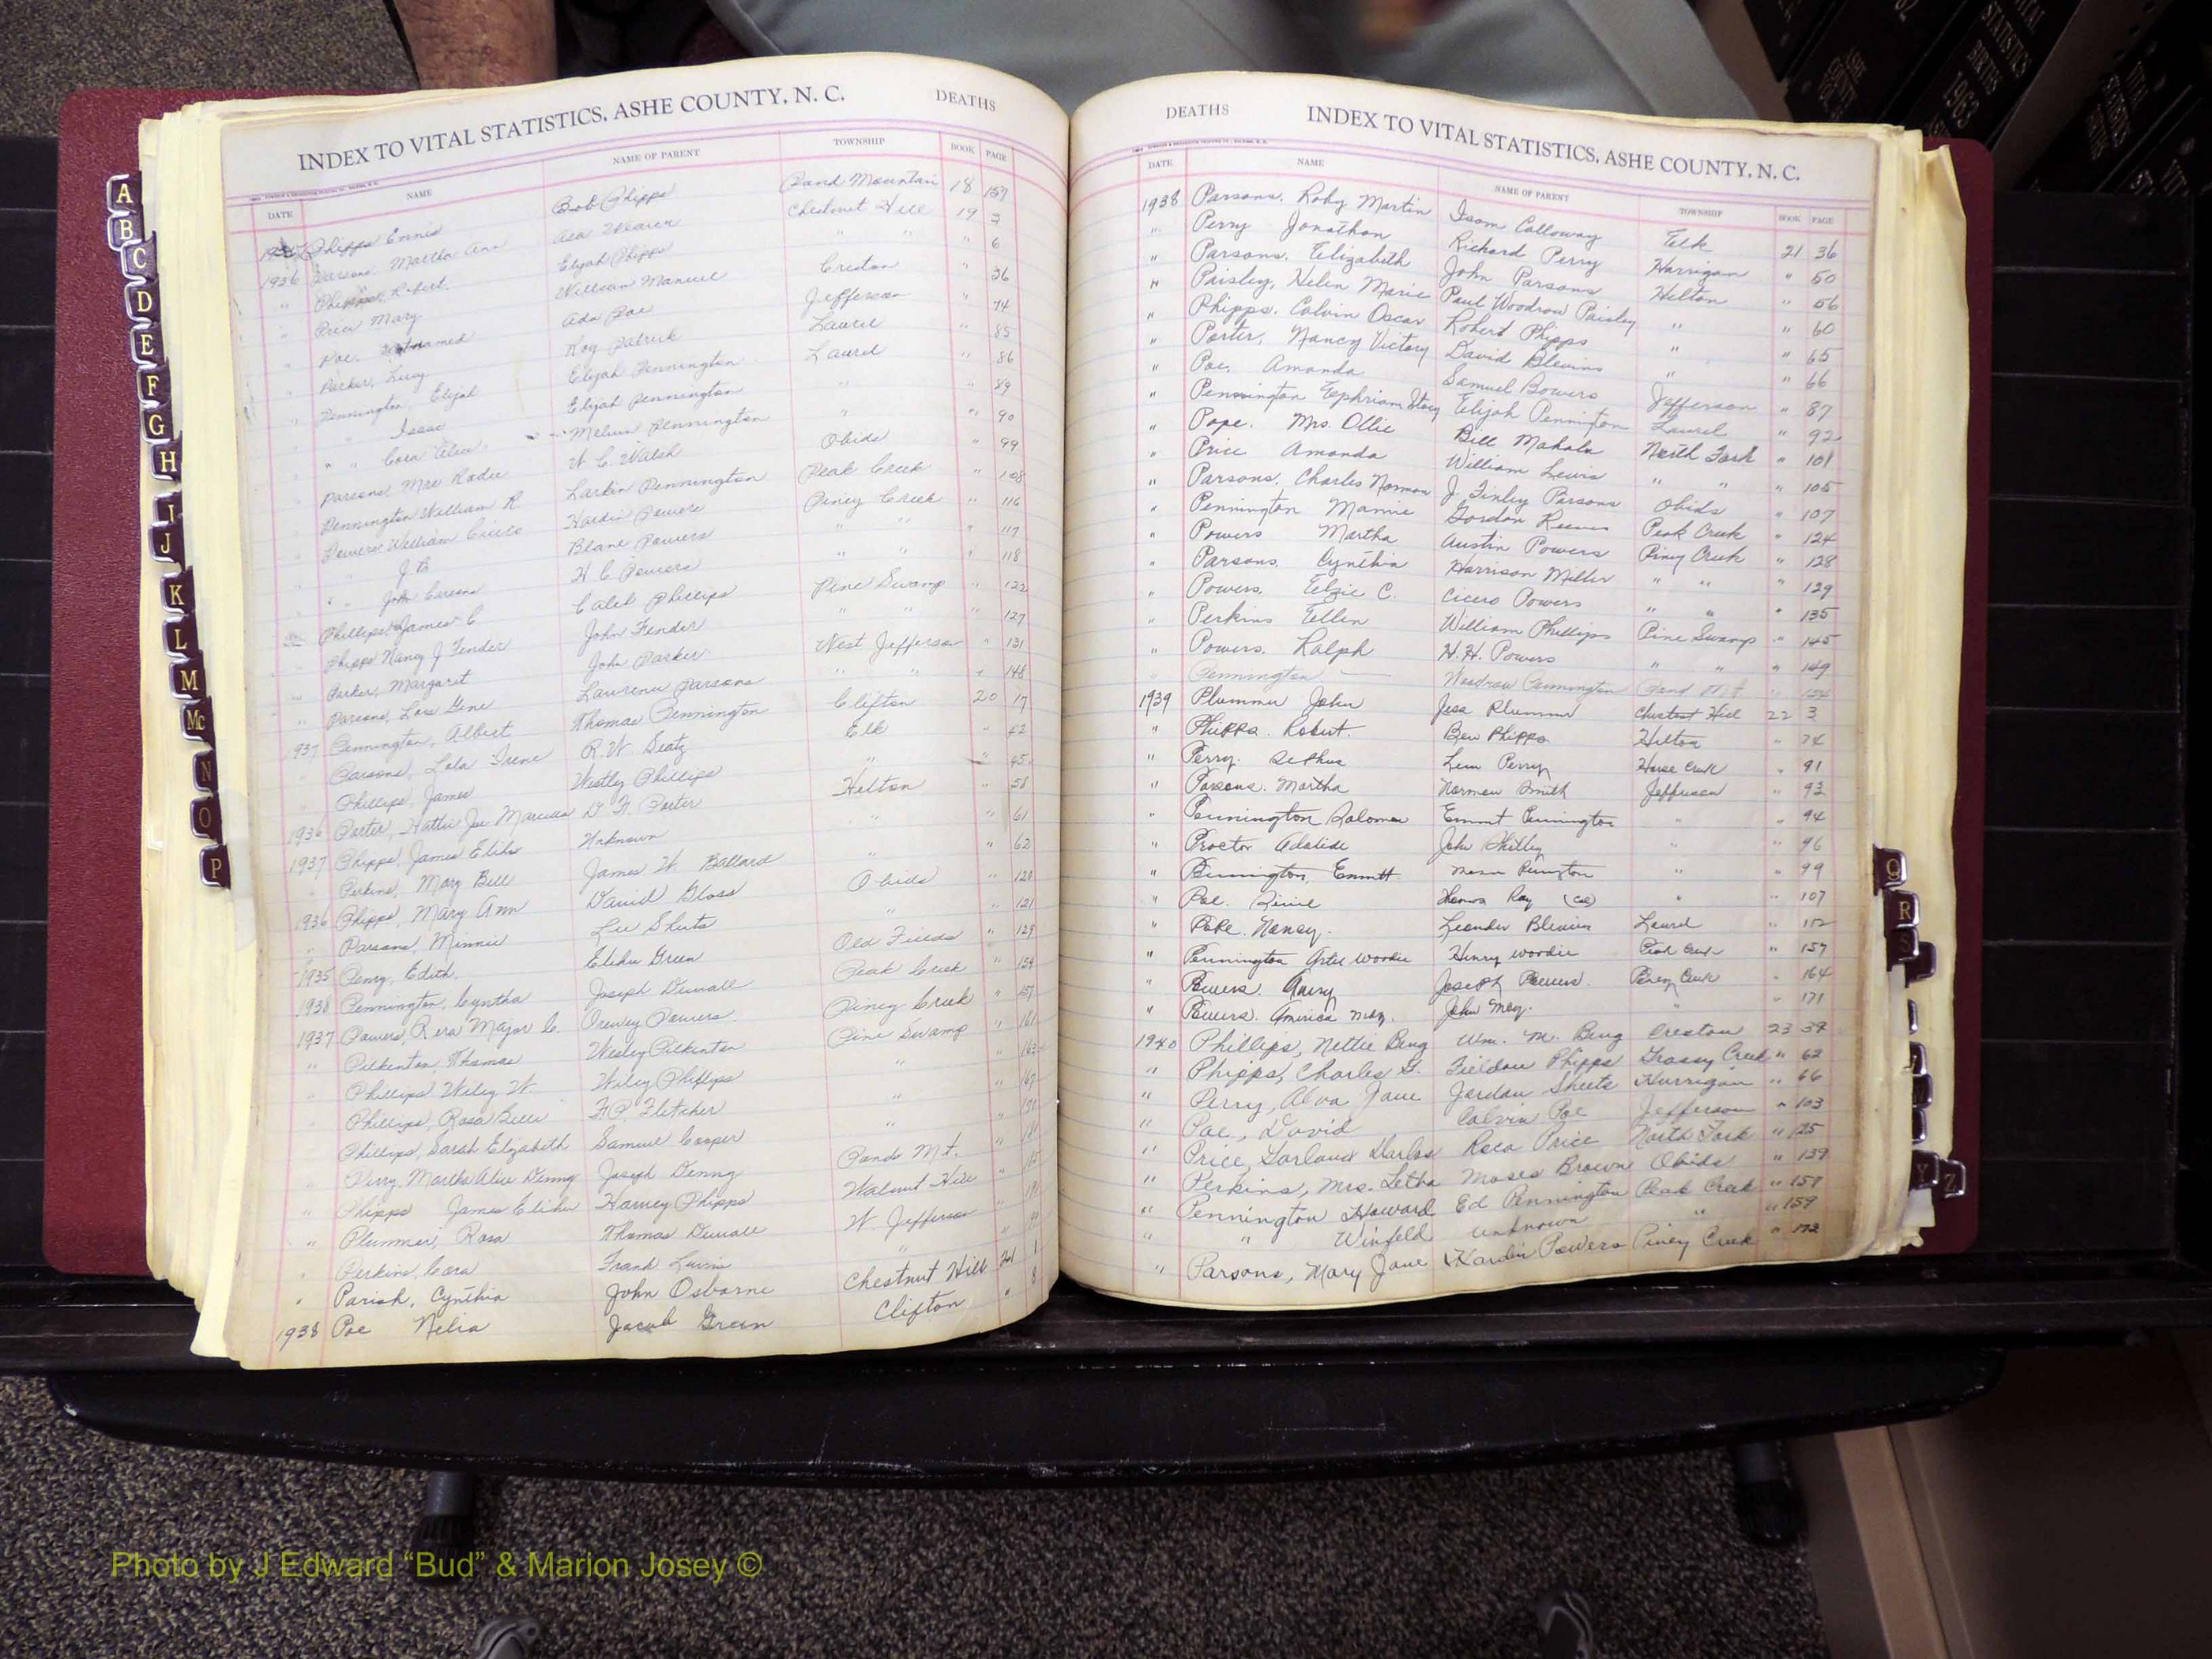 INDEX TO VITAL STATISTICS, ASHE COUNTY, N. C. DEATHS
DATE NAME NAME OF PARENT TOWNSHIP BOOK PAGE
Phipps Ennis Bob Phipps Pond Mountain 18 157
1936 Parsons Martha Ann Asa Weaver Chestnut Hill 19 3
" Phipps, Robert. Elijah Phipps " " " 6
" Price Mary William Manuel Creston " 36
" Poe. Ada Poe Jefferson " 74
" Parker, Lucy Roy Patrick Laurel " 85
" Pennington, Elijah Elijah Pennington Laurel " 86
" " Isaac Elijah Pennington " " 89
" " Cora Melvin Pennington " " 90
" Parsons, Mrs W. C. Walsh Obids " 99
" Pennington William R. Larkin Pennington Peak Creek " 108
" Powers William Hardin Powers Piney Creek " 116
" " J.B. Blane Powers " " " 117
" " John H C Powers " " " 118
Phillips James C. Caleb Phillips Pine Swamp " 122
Phipps Nancy J Fender John Fender " " " 127
" Parker, Margaret John Parker West Jefferson " 131
" Parsons, Gene Laurence Parsons " " " 148
1937 Pennington, Albert Thomas Pennington Clifton 20 17
" Parsons, Lola Irene R. W. Elk " 42
" Phillips, James Westley Phillips " " 45
1936 Porter, Hattie D. F. Porter Helton " 58
1937 Phipps, James Unknown " " 61
" Perkins, Mary Bell James W. Ballard " " 62
1936 Phipps, Mary Ann David Obids " 120
" Parsons, Minnie Lee Sheets " " 121
1935 Perry, Edith, Elihu Green Old Fields " 129
1938 Pennington, Cyntha Joseph Duvall Peak Creek "
1937 Powers, Major C. Powers. Piney Creek "
" Pilkenton, Thomas Wesley Pilkenton Pine Swamp "
" Phillips Wiley W. Wiley Phillips "
Phillips, Rosa Belle F. P. Fletcher
Phillips, Sarah Elizabeth Samuel Cooper "
" Perry. Martha Alice Denny Joseph Denny Pond Mt.
" Phipps James Elihu Harvey Phipps Walnut Hill
" Plummer, Rosa Thomas Duvall W. Jefferson
" Perkins, Cora Frank "
" Parish, Cynthia John Osborne Chestnut Hill 21 1
1938 Poe Jacob Green Clifton " 8
DEATHS INDEX TO VITAL STATISTICS, ASHE COUNTY, N. C.
DATE NAME NAME OF PARENT TOWNSHIP BOOK PAGE
1938 Parsons, Roby Martin Isom Calloway Elk 21 36
" Perry Jonathan Richard Perry Horrigan " 50
" Parsons, Elizabeth John Parsons Helton " 56
" Paisley, Helen Marie Paul Woodrow Paisley " " 60
" Phipps, Calvin Oscar Robert Phipps " " 65
" Porter, Nancy Victory David Blevins " " 66
" Poe, Amanda Samuel Bowers Jefferson " 87
" Pennington Ephriam Elijah Pennington Laurel " 92
" Pope. Mrs. Ollie Bill Mahala North Fork " 101
" Price Amanda William Lewis " " " 105
" Parsons, Charles Norman J. Finley Parsons Obids " 107
" Pennington Mamie Gordon Reeves Peak Creek " 124
" Powers Martha Austin Powers Piney Creek " 128
" Parsons, Cynthia Harrison Miller " " " 129
" Powers, Elzie C. Cicero Powers " " " 135
" Perkins Ellen William Phillips Pine Swamp " 145
" Powers, Ralph H. H. Powers " " " 149
" Pennington — Woodrow Pennington Pond Mt
1939 Plummer John Jess Plummer Chestnut Hill 22 3
" Phipps. Robert. Ben Phipps Helton " 74
" Perry. Arthur Lem Perry Horse Creek " 91
" Parsons. Martha Norman Smith Jefferson " 93
" Pennington Solomon Emmt Pennington " " 94
" Proctor Adalide John " " 96
" Pennington, Emmtt " " 99
" Poe. Thomas Ray (Col) " " 107
" Pope. Nancy. Leander Blevins Laurel " 112
" Pennington Woodie Henry Woodie Peak Creek " 157
" Powers. Avery Joseph Powers. Piney Creek " 164
" Powers. America May. John May. " " 171
1940 Phillips, Nettie Bing Wm. M. Bing Creston 23 39
" Phipps, Charles F. Fieldon Phipps Grassy Creek " 62
" Perry, Alva Jane Jordan Sheets Hurrigan " 66
" Poe, David Calvin Poe Jefferson " 103
" Price, Garland Reca Price North Fork " 125
" Perkins, Mrs. Letha Moses Brown Obids " 139
" Pennington Howard Ed Pennington Peak Creek " 157
" " Winfeld unknown " " 159
" Parsons, Mary Jane Hardin Powers Piney Creek " 172
A
B
C
D
E
F
G
H
I
J
K
L
M
Mc
N
O
P
Q
R
S
Y
Z
VITAL STATISTICS BIRTHS 1963
Photo by J Edward “Bud” & Marion Josey ©